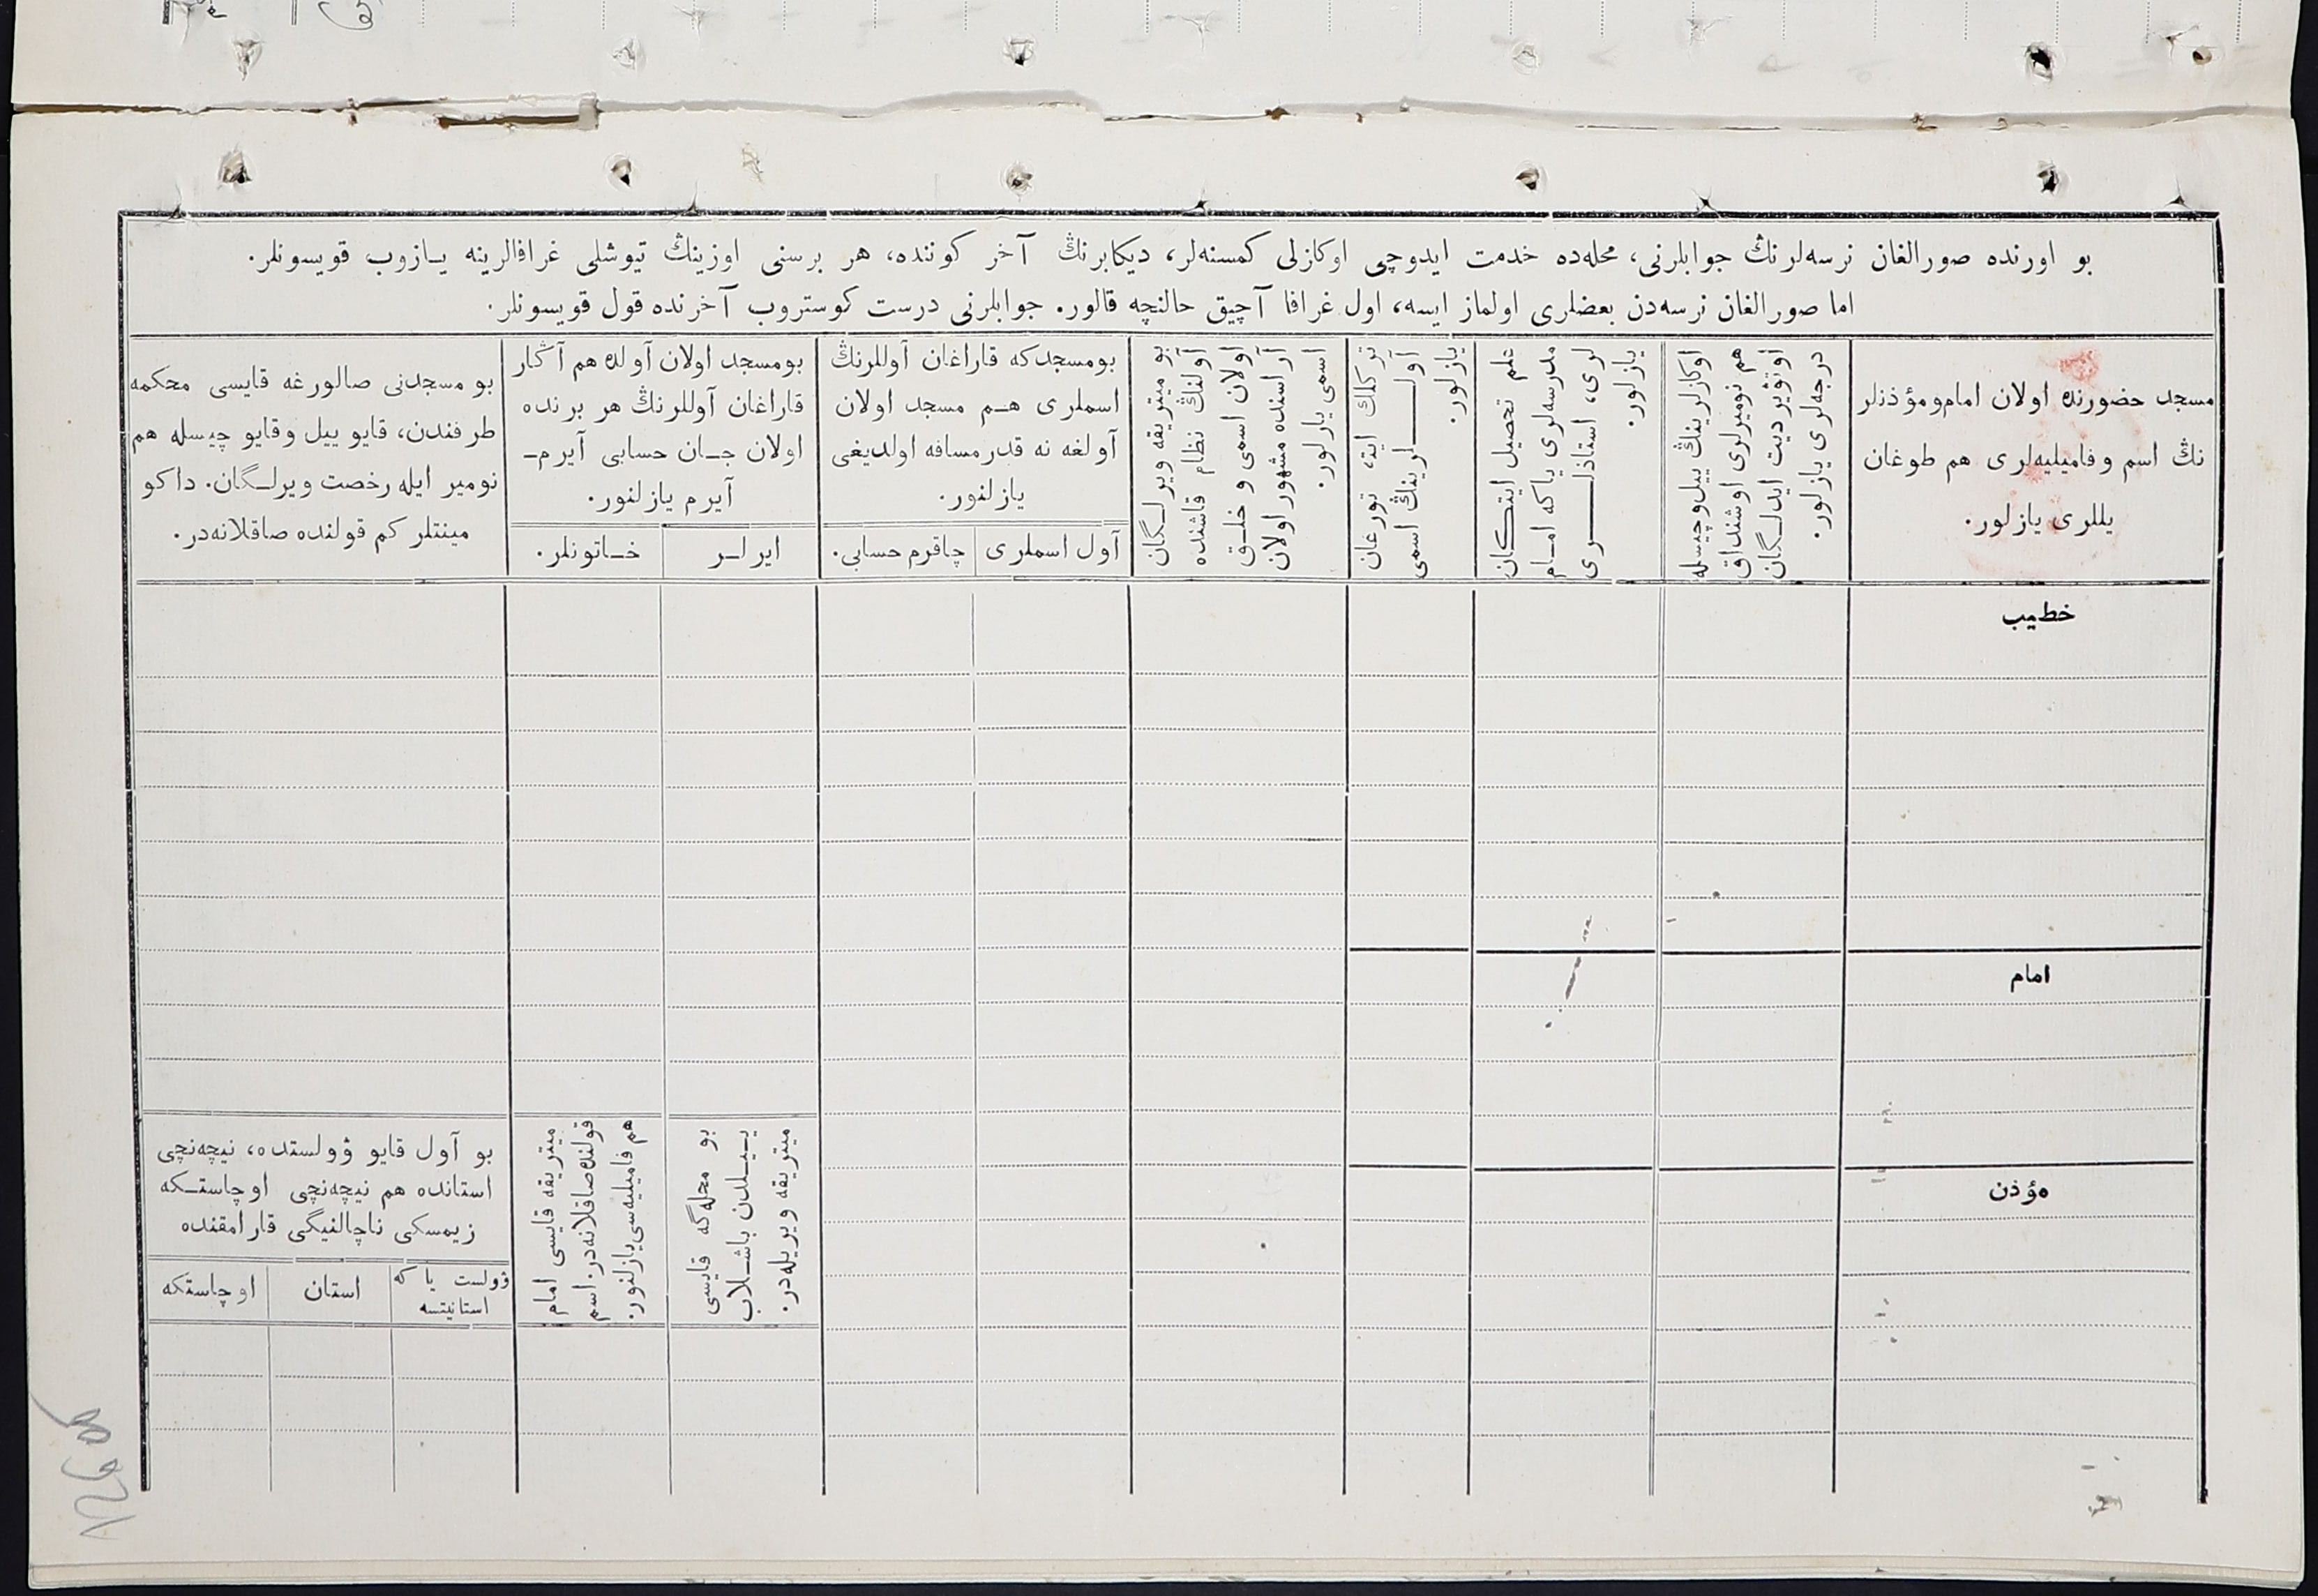 بو اورنده صورالغان نرسه‌لرنڭ جوابلرنی، محله‌ده خدمت ایدوچی اوکازلی کمسنه‌لر، دیکابرنڭ آخر کوننده، هر برسنی اوزینڭ تیوشلی غرافالرینه یـازوب قویسونلر.
اما صورالغان نرسه‌دن بعضلری اولماز ایسه، اول غرافا آچیق حالنچه قالور. جوابلرنی درست کوستروب آخرنده قول قویسونلر.
مسجد حضورنده اولان امام‌ومؤذنلر
نڭ اسم وفامیلیه‌لری هم طوغان
یللری یازلور.
اوکازلرینڭ ییل‌وچیسله
هم نومیرلری اوشنداق
اوتوَیردیت ایدلـگان
درجه‌لری یازلور.
علم تحصیل ایتـکان
مدرسه‌لری یاکه امـام
لری، استاذلـــری
یازلور.
ترکلك ایتە تورغان
آولـــلرینڭ اسمی
یازلور.
بو میتریقه ویرلـگان
آولنڭ نظام قاشنده
اولان اسمی و خلـق
آراسنده مشهور اولان
اسمی یازلور.
بومسجدکه قاراغان آوللرنڭ
اسملری هـم مسجد اولان
آولغه نه قدرمسافه اولدیغی
یازلنور.
آول اسملری
چاقرم حسابی.
بومسجد اولان آولده هم آڭار
قاراغان آوللرنڭ هر برنده
اولان جـان حسابی آیرم‌ـ
آیرم یازلنور.
ایرلـر
خـاتونلر.
بو مسجدنی صالورغه قایسی محکمه
طرفندن، قایو ییل وقایو چیسله هم
نومیر ایله رخصت ویرلـگان. داکو
مینتلر کم قولنده صاقلانه‌در.
خطیب
امام
مؤذن
بو محله‌گه قایسی
ییـلدن باشـلاب
میتریقه ویریله‌در.
میتریقه قایسی امام
قولنده‌صاقلانه‌در. اسم
هم فامیلیه‌سی‌یازلنور.
بو آول قایو وٚولستده، نیچه‌نچی
استانده هم نیچه‌نچی اوچاستـکه
زیمسکی ناچالنیگی قارامقنده
وٚولست یا که
استانیتسه
استان
اوچاستکه